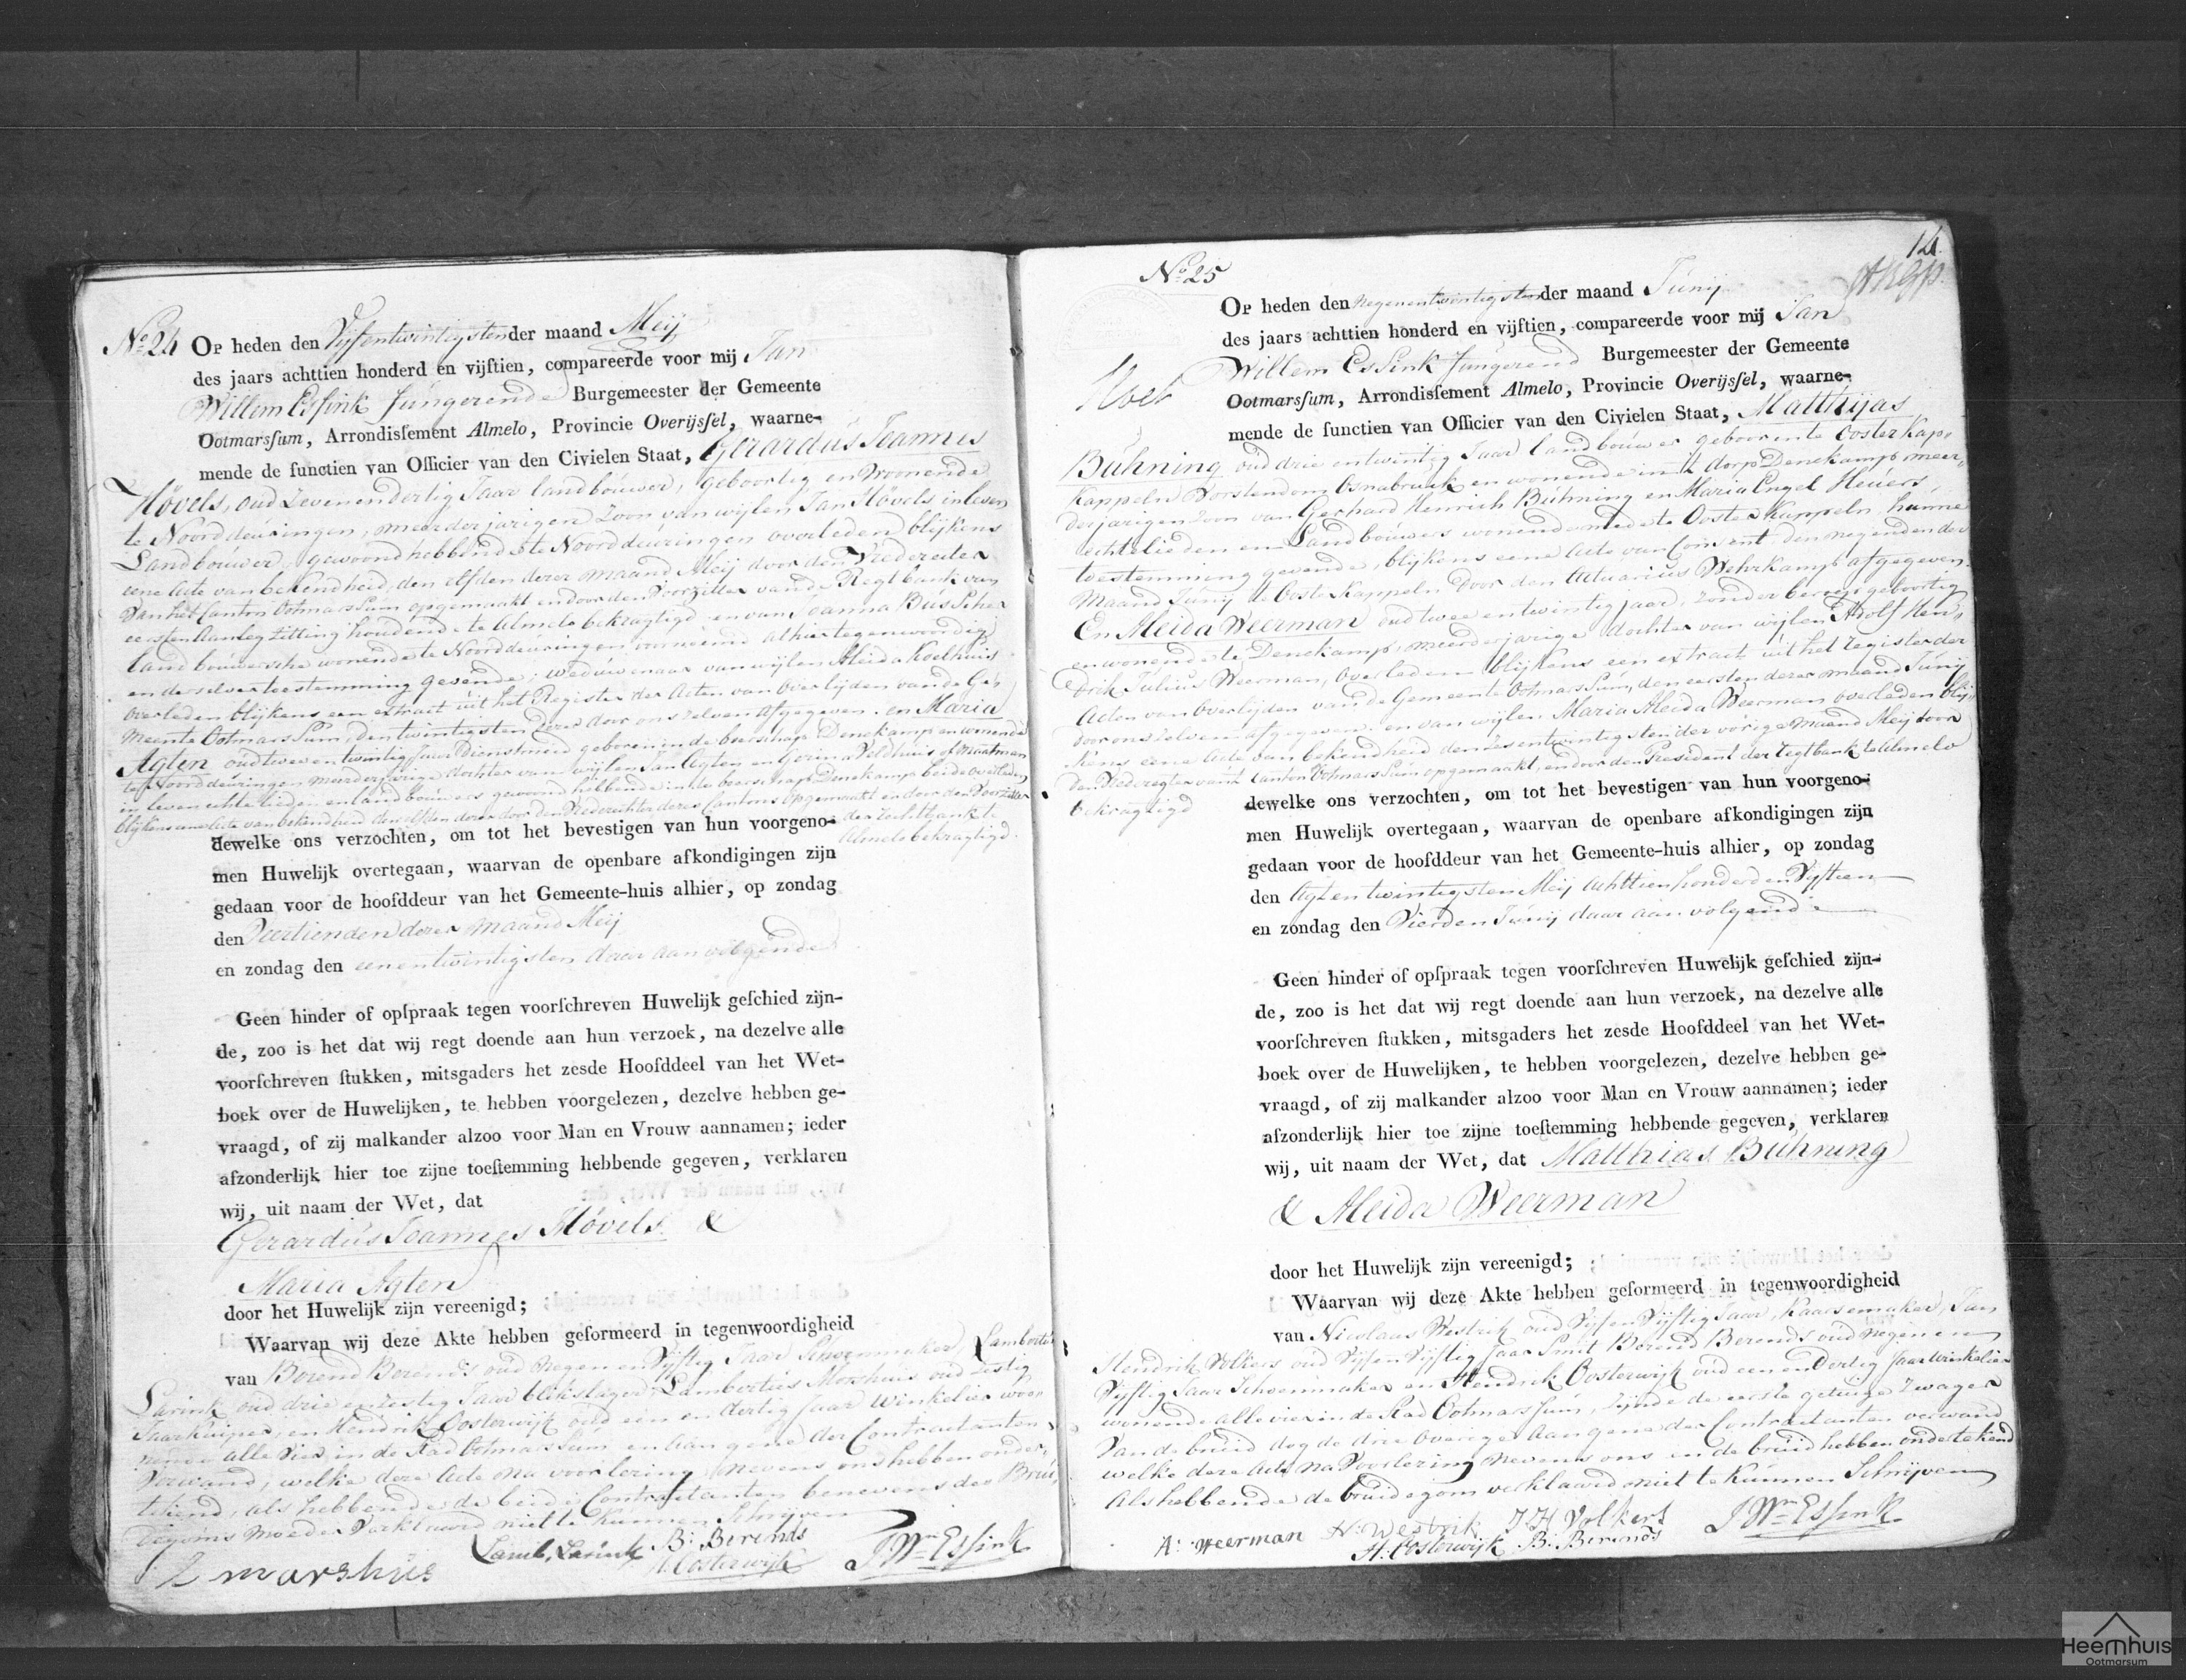 No 24 Op heden den Vijfentwintigsten der maand Meij
des jaars achttien honderd en vijftien, compareerde voor mij Jan
Willem Essink Jungerende Burgemeester der Gemeente
Ootmarssum, Arrondissement Almelo, Provincie Overijssel, waarne-
mende de functien van Officier van den Civielen Staat, Gerardus Joannes
Hövels, oud Zevenendertig Jaar landbouwer, geboortig en woonende
te Noorddeuringen, meerderjarigen Zoon van wijlen Jan Hövels in leven
Landbouwer, gewoond hebbende te Noorddeuringen overleden blijkens
eene Acte van bekendheid, den elfden dezer maand Meij door den Vrederechter
van het Canton Ootmarssum opgemaakt en door den Voorzitter van de Regtbank van
eersten Aanleg zitting houdende te Almelo bekragtigd en van Joanna Busscher
landbouwersche wonende te Noorddeuringen voornoemd alhier tegenwoordig
en derselver toestemming gevende; weduwenaar van wijlen Aleida Koelhuis
overleden blijkens een extract uit het Register der Acten van Overlijden van de Ge-
meente Ootmarssum, den twintigsten dezer door ons zelven afgegeven. en Maria
Agten oud twee en twintig Jaar Dienstmeid geboren in de boerschap Denekamp en wonende
te Noorddeuringen meerderjarige dochter van wijlen Jan Agten en Gerina Veldhuis of Maatman
in leven echtelieden en landbouwers gewoond hebbende in de boerschap Denekamp beide overleden
blijkens eene Acte van bekendheid den elfden dezer door den Vrederechter dezes Cantons opgemaakt en door den Voorzitter
der rechtbank te
Almelo bekragtigd.
dewelke ons verzochten, om tot het bevestigen van hun voorgeno-
men Huwelijk overtegaan, waarvan de openbare afkondigingen zijn
gedaan voor de hoofddeur van het Gemeente-huis alhier, op zondag
den Veertienden dezer maand Meij
en zondag den eenentwintigsten daar aan volgende
Geen hinder of opspraak tegen voorschreven Huwelijk geschied zijn-
de, zoo is het dat wij regt doende aan hun verzoek, na dezelve alle
voorschreven stukken, mitsgaders het zesde Hoofddeel van het Wet-
boek over de Huwelijken, te hebben voorgelezen, dezelve hebben ge-
vraagd, of zij malkander alzoo voor Man en Vrouw aannamen; ieder
afzonderlijk hier toe zijne toestemming hebbende gegeven, verklaren
wij, uit naam der Wet, dat
Gerardus Joannes Hövels &
Maria Agten
door het Huwelijk zijn vereenigd;
Waarvan wij deze Akte hebben geformeerd in tegenwoordigheid
van Berend Berends oud Negen en Vijftig Jaar Schoenmaker, Lambertus
Larink oud drie en zestig Jaar blikslager, Lambertus Morshuis oud zestig
Jaar Kuiper, en Hendrik Oosterwijk oud een en dertig Jaar Winkelier woo-
nende alle Vier in de Stad Ootmarssum en aan gene der Contractanten
Verwand, welke deze Acte na voorlezing nevens ons hebben onder-
tekend, als hebbende de beide Contractanten benevens des Brui-
degoms moeder Verklaard niet te kunnen Schrijven
L marshuis Lamb. Larink B: Berends H Oosterwijk J Wm Essink
14
No 25
Op heden den Negenentwintigsten der maand Junij
des jaars achttien honderd en vijftien, compareerde voor mij Jan
Willem Essink Jungerend Burgemeester der Gemeente
Ootmarssum, Arrondissement Almelo, Provincie Overijssel, waarne-
mende de functien van Officier van den Civielen Staat, Matthijas
Bühning oud drie en twintig Jaar landbouwer geboren te Oosterkap-
Kappeln Vorstendom Osnabruk en wonende in 't dorp Denekamp meer-
derjarigen zoon van Gerhard Henrich Bühning en Maria Engel Heuers,
echtelieden en Landbouwers wonende mede te Oosterkappeln, hunne
toestemming gevende, blijkens eene Acte van Consent den negenden der
Maand Junij te Oosterkappeln door den Actuarius Wehrkamp afgegeven
En Aleida Weerman oud twee en twintig jaar, zonder beroep geboortig
en wonende te Denekamp, meerderjarige dochter van wijlen Adolf Hen-
drik Julius Weerman, Overleden blijkens een extract uit het register der
Acten van Overlijden van de Gemeente Ootmarssum, den eersten dezer maand Junij
door ons zelven afgegeven en van wijlen Maria Aleida Weerman overleden blij-
kens eene Acte van bekendheid den zesentwintigsten der vorige maand Meij door
den Vrederegter van 't Canton Ootmarssum opgemaakt, en door den President der regtbank te Almelo
bekragtigd
dewelke ons verzochten, om tot het bevestigen van hun voorgeno-
men Huwelijk overtegaan, waarvan de openbare afkondigingen zijn
gedaan voor de hoofddeur van het Gemeente-huis alhier, op zondag
den Agtentwintigsten Meij Achttienhonderd en Vijftien
en zondag den Vierden Junij daar aan volgende
Geen hinder of opspraak tegen voorschreven Huwelijk geschied zijn-
de, zoo is het dat wij regt doende aan hun verzoek, na dezelve alle
voorschreven stukken, mitsgaders het zesde Hoofddeel van het Wet-
boek over de Huwelijken, te hebben voorgelezen, dezelve hebben ge-
vraagd, of zij malkander alzoo voor Man en Vrouw aannamen; ieder
afzonderlijk hier toe zijne toestemming hebbende gegeven, verklaren
wij, uit naam der Wet, dat Matthias Bühning
& Aleida Weerman
door het Huwelijk zijn vereenigd;
Waarvan wij deze Akte hebben geformeerd in tegenwoordigheid
van Nicolaas Westrik oud Vijf en Vijftig Jaar, Kaarsemaker, Jan
Hendrik Volkers oud Vijf en Vijftig Jaar Smit Berend Berends oud Negen en
Vijftig Jaar Schoenmaker en Hendrik Oosterwijk oud een en Dertig Jaar Winkelier
wonende alle vier in de Stad Ootmarssum, Zijnde de eerste getuige Zwager
van de bruid dog de drie Overige Aan gene der Contractanten verwand
welke deze Acte na Voorlezing nevens ons en de bruid hebben ondertekend
Als hebbende de bruidegom verklaard niet te Kunnen Schrijven
A: weerman H: Westrik J H Volkers J Wm Essink
H: Oosterwijk B: Berends
Heemhuis
Ootmarsum